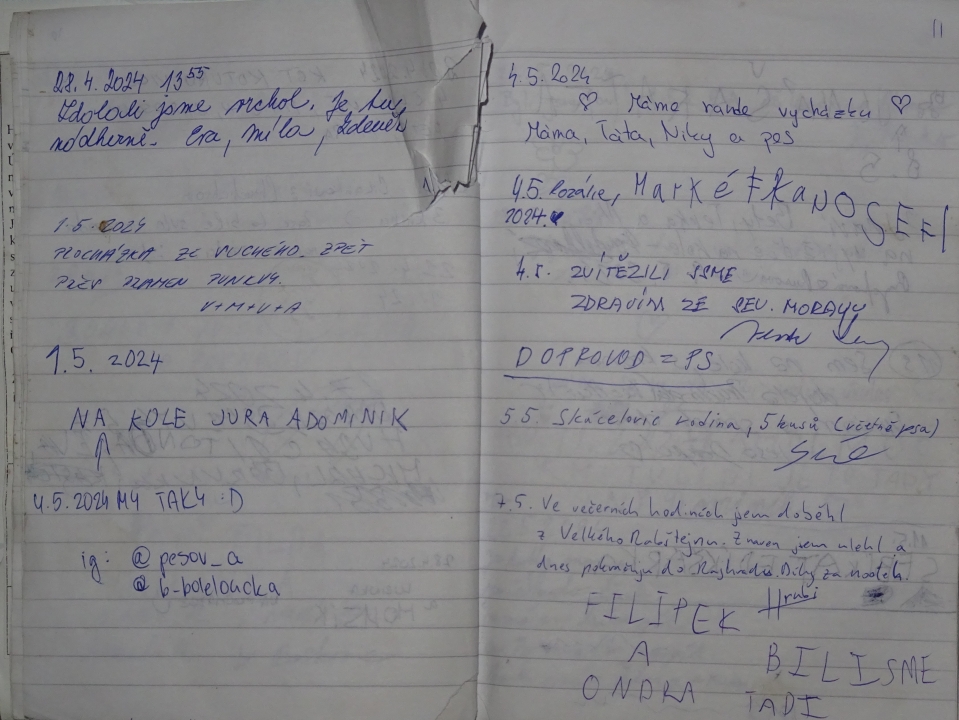 28.4.2024 13⁵⁵
Zdolali jsme vrchol. Je tu
nádherně. Eva, Míla, Zdeněk
1.5.2024
PROCHÁZKA ZE SUCHÉHO. ZPĚT
PŘES PRAMEN PUNKVY.
V+M+V+A
1.5. 2024
NA KOLE JURA A DOMINIK
4.5.2024 MY TAKY :D
ig: @pesov_a
@b-boleloucka
11
4.5.2024
♡ Máme rande vycházku ♡
Máma, Táta, Niky a pes
4.5. Rozálie, MarKéTKa NO SEF
2024.
4.5. ZVÍTĚZILI JSME
ZDRAVÍM ZE SEV. MORAVY
DOPROVOD = PS
5 5. Skácelovic rodina, 5 kusů (včetně psa)
7.5. Ve večerních hodinách jsem doběhl
z Velkého Rabštejnu. Znaven jsem ulehl a
dnes pokračuju do Rajhradu. Díky za nocleh.
Hrubi
FILÍPEK
A
ONDRA
BILI SME
TADI